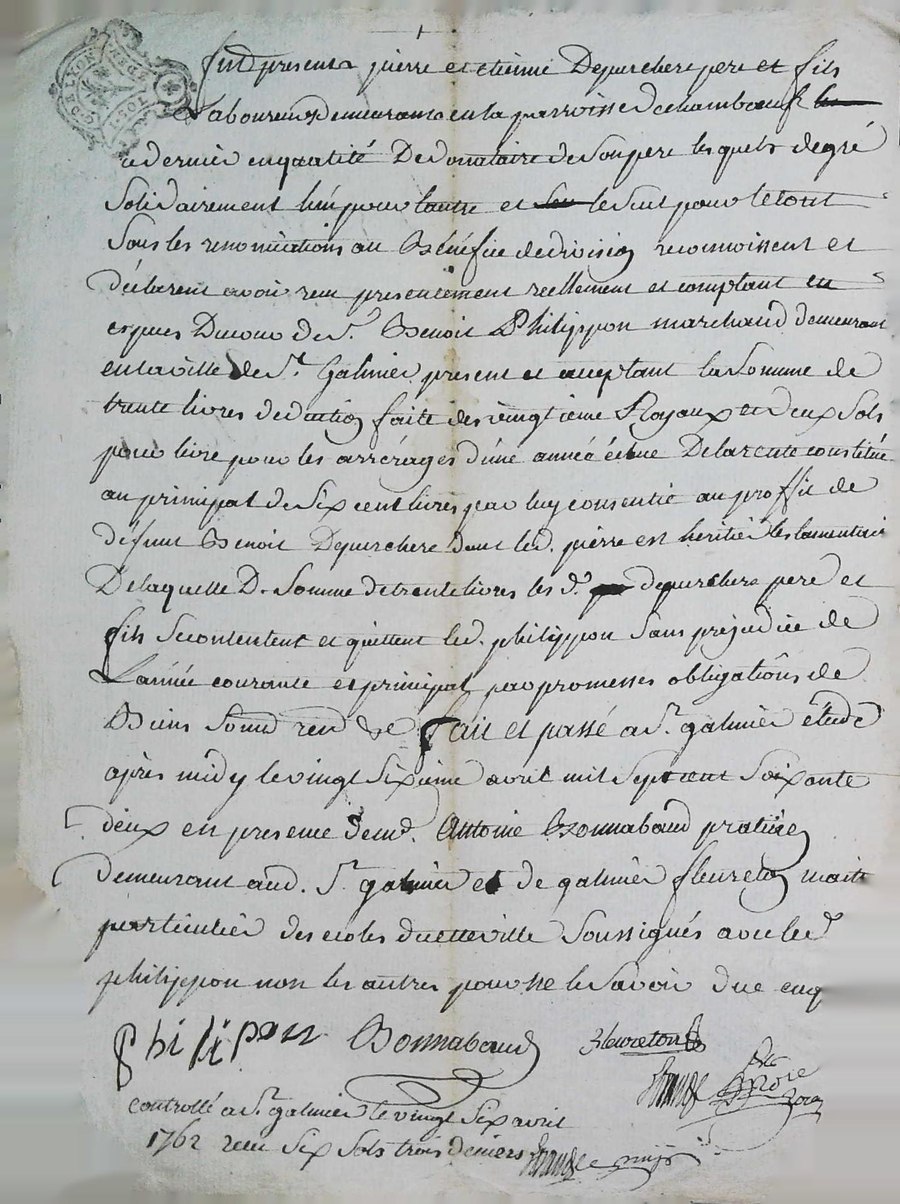 furent presents pierre et etienne Depurchere pere et fils
Laboureurs demeurants en la parroisse de chambœuf le
ce dernier en qualité De donataire de son pere lesquels de gré
Solidairement l'un pour lautre et le seul pour le tout
Sous les renonciations au Bénéfice de division reconnoissent et
déclarent avoir reçu presentement reellement et comptant en
especes Du cours de Sr. Benoit Philippon marchand demeurant
en la ville de St. Galmier present et acceptant la Somme de
trente livres deduction faite des vingtieme Royaux et deux Sols
pour livre pour les arrérages d'une année échue De la rente constitué
au principal de Six cent livres par luy consentie au proffit de
défunt Benoit Depurchere Dont led. pierre est heritier testamentair
De laquelle D. Somme de trente livres les d. depurchere pere et
fils Se contentent et quittent led. philippon Sans prejudice de
L'année courante et principal par promesses obligatôns de
Biens Soumd rend &c fait et passé a St. galmier étude
après midy le vingt Sixieme avril mil Sept cent Soixante
deux en presence de md. Antoine Bonnabaud praticien
demeurant aud. St. galmier et de galmier fleureton maitre
particulier des ecoles duette ville Soussignés avec led
philippon non les autres pour ne le Savoir de ce enq
philipon Bonnabaud fleureton
controllé a St. galmier le vingt Six avril
1762 reçu Six Sols trois deniers